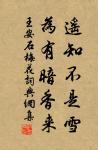 遥知不是雪
为有暗香来
王安石梅花词典网集